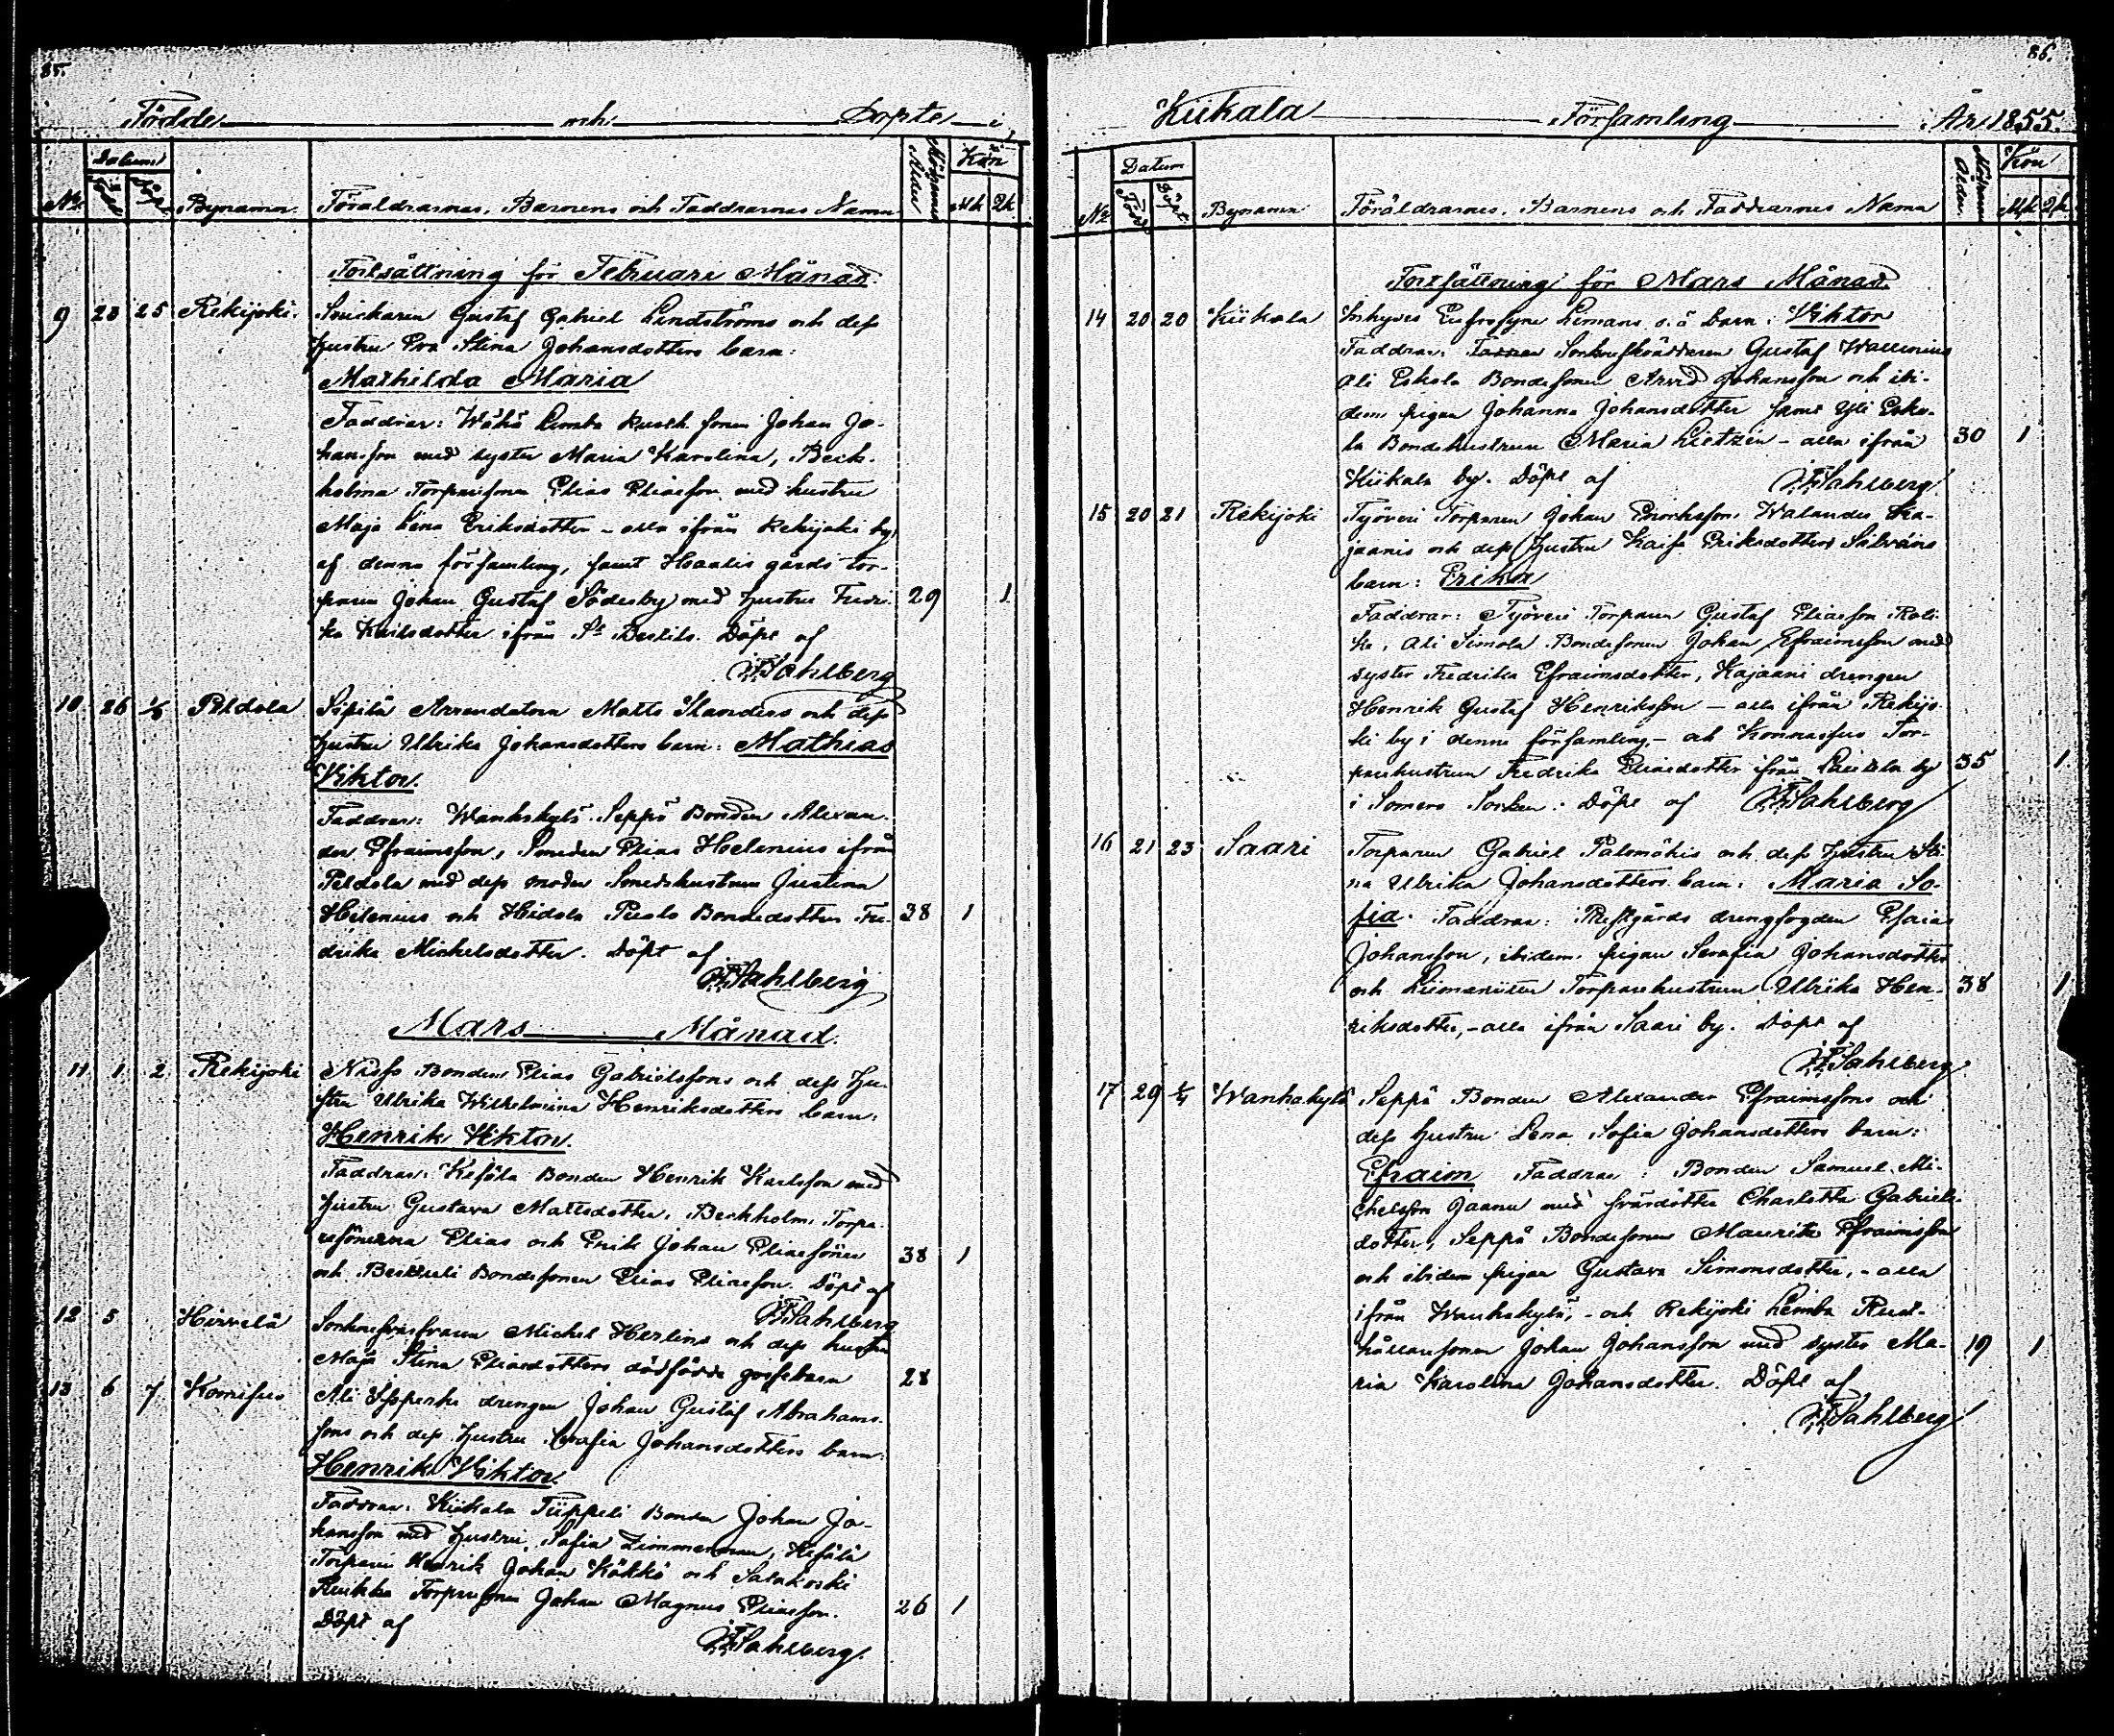 85.
Födde och Döpte i
Datum Mödrarnes Ålder Kön
No Född Döpt Bynamn Föräldrarnes, Barnens och Faddrarnes Namn Mk Qk
Fortsättning för Februari Månad.
9 23 25 Rekijoki. Snickaren Gustaf Gabriel Lindströms och dess
hustru Eva Stina Johansdotters barn:
Mathilda Maria
Faddrar: Wähä Limba Rusth. sonen Johan Jo-
hansson med syster Maria Karolina, Beck-
holma Torparesonen Elias Eliasson med hustru
Maja Lena Eriksdotter – alla ifrån Rekijoki by
af denna församling, samt Haalis gårds tor-
paren Johan Gustaf Söderby med hustru Fredri- 29 1
ka Karlsdotter ifrån St Bertils. Döpt af
F. Sahlberg
10 26 Peldola Sipilä Arrendatorn Matts Standers och dess
hustru Ulrika Johansdotters barn: Mathias
Viktor.
Faddrar: Wanhakylä Seppä Bonden Alexan-
der Efraimsson, Smeden Elias Helenius ifrån
Peldola med dess moder Smedshustrun Justina
Helenius och Hidola Bondedotter Fre- 38 1
drika Michelsdotter. Döpt af
F. Sahlberg
Mars Månad.
11 1 2 Rekijoki Bonden Elias Gabrielssons och dess hu-
stru Ulrika Wilhelmina Henriksdotters barn:
Henrik Viktor.
Faddrar: Bonden Henrik Karlsson med
hustru Gustava Mattsdotter, Beckholm Torpa-
resönerna Elias och Erik Johan Eliassöner 38 1
och Bondesonen Elias Eliasson. Döpt af
F. Sahlberg
12 5 Hirvelä Michel Herlins och dess hustru
Maja Stina Eliasdotters dödfödda gossebarn 28
13 6 7 Komisuo Ali drengen Johan Gustaf Abrahams-
sons och dess hustru Serafia Johansdotters barn:
Henrik Viktor
Faddrar: Kiikala Tüppeli Bonden Johan Jo-
hansson med hustru Sofia Zimmerman,
Torparen Henrik Johan Kökkö och Salakoski
Torparesonen Johan Magnus Eliasson. 26 1
Döpt af
F. Sahlberg.
86.
Kiikala Församling År 1855.
Datum Mödrarnes Ålder Kön
No Född Döpt Bynamn Föräldrarnes, Barnens och Faddrarnes Namn Mk Qk
Fortsättning för Mars Månad.
14 20 20 Kiikala Inhyses Eufrosyne Limans o.ä. barn: Viktor
Faddrar: Sockneskräddaren Gustaf Wallenius
Ali Eskola Bondesonen Arvid Johansson och ibi-
dem pigan Johanna Johansdotter samt Yli Esko-
la Bondehustrun Maria Lietzén – alla ifrån 30 1
Kiikala by. Döpt af F. Sahlberg.
15 20 21 Rekijoki Työveri Torparen Johan Walander Ka-
jaanis och dess hustru Kaisa Eriksdotter
barn: Erika
Faddrar: Työveri Torparen Gustaf Eliasson
Ali Simola Bondesonen Johan Efraimsson med
syster Fredrika Efraimsdotter, Kajaani drengen
Henrik Gustaf Henriksson – alla ifrån Rekijo-
ki by i denna församling, – och Tor-
parehustrun Fredrika Eliasdotter ifrån by 35 1
i Somero Socken. Döpt af F. Sahlberg
16 21 23 Saari Torparen Gabriel Palomäkis och dess hustru Sti-
na Ulrika Johansdotters barn: Maria So-
fia. Faddrar: Prestgårds drengfogden Esaias
Johansson, ibidem pigan Serafia Johansdotter
och Torparehustrun Ulrika Hen- 38 1
riksdotter, – alla ifrån Saari by. Döpt af
F. Sahlberg
17 29 1/4 Wanhakylä Seppä Bonden Alexander Efraimssons och
dess hustru Lena Sofia Johansdotters barn:
Efraim Faddrar: Bonden Samuel Mi-
chelsson Jaanu med Charlotta Gabriels-
dotter, Seppä Bondesonen Maurits Efraimsson
och ibidem pigan Gustava Simonsdotter, – alla
ifrån Wanhakylä, – och Rekijoki Limba Rust-
hållaresonen Johan Johansson med syster Ma- 19 1
ria Karolina Johansdotter. Döpt af
F. Sahlberg